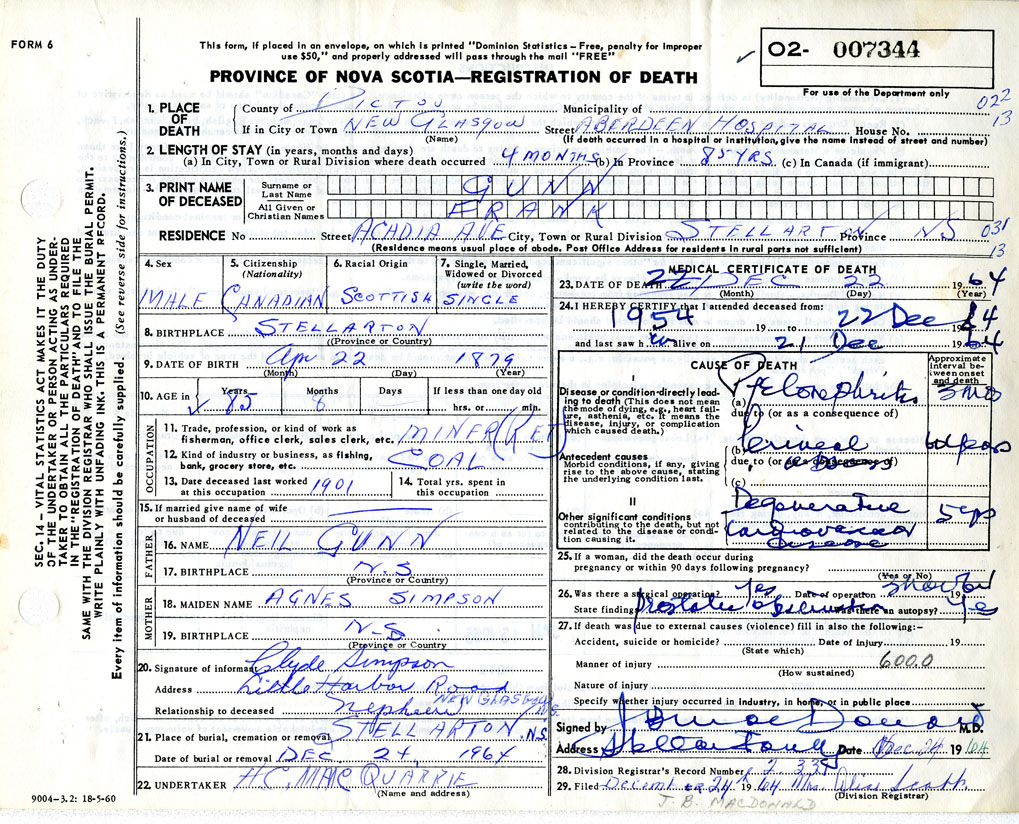 FORM 6
This form, if placed in an envelope, on which is printed "Dominion Statistics – Free, penalty for improper
use $50," and properly addressed will pass through the mail "FREE"
PROVINCE OF NOVA SCOTIA—REGISTRATION OF DEATH
O2- 007344
For use of the Department only
022
13
1. PLACE OF DEATH
County of Pictou Municipality of
If in City or Town NEW GLASGOW Street ABERDEEN HOSPITAL House No.
(Name) (If death occurred in a hospital or institution, give the name instead of street and number)
2. LENGTH OF STAY (in years, months and days)
(a) In City, Town or Rural Division where death occurred 4 MONTHS (b) In Province 85 YRS. (c) In Canada (if immigrant)
3. PRINT NAME OF DECEASED
Surname or Last Name GUNN
All Given or Christian Names FRANK
RESIDENCE No Street ACADIA AVE City, Town or Rural Division STELLARTON Province NS
(Residence means usual place of abode. Post Office Address for residents in rural parts not sufficient)
031
13
4. Sex MALE
5. Citizenship (Nationality) CANADIAN
6. Racial Origin SCOTTISH
7. Single, Married, Widowed or Divorced (write the word) SINGLE
8. BIRTHPLACE STELLARTON
(Province or Country)
9. DATE OF BIRTH Apr 22 1879
(Month) (Day) (Year)
10. AGE in Years 85 Months 8 Days If less than one day old hrs. or min.
OCCUPATION
11. Trade, profession, or kind of work as fisherman, office clerk, sales clerk, etc. MINER (RET)
12. Kind of industry or business, as fishing, bank, grocery store, etc. COAL
13. Date deceased last worked at this occupation 1901
14. Total yrs. spent in this occupation
15. If married give name of wife or husband of deceased
FATHER
16. NAME NEIL GUNN
17. BIRTHPLACE N.S.
(Province or Country)
MOTHER
18. MAIDEN NAME AGNES SIMPSON
19. BIRTHPLACE N-S
(Province or Country)
20. Signature of informant Clyde Simpson
Address Little Harbor Road
NEW GLASGOW N.S.
Relationship to deceased nephew
21. Place of burial, cremation or removal STELLARTON, N.S.
Date of burial or removal DEC 24, 1964
22. UNDERTAKER H.C. MAC QUARRIE
(Name and address)
9004–3.2: 18-5-60
SEC. 14 – VITAL STATISTICS ACT MAKES IT THE DUTY
OF THE UNDERTAKER OR PERSON ACTING AS UNDER-
TAKER TO OBTAIN ALL THE PARTICULARS REQUIRED
IN THE "REGISTRATION OF DEATH" AND TO FILE THE
SAME WITH THE DIVISION REGISTRAR WHO SHALL ISSUE THE BURIAL PERMIT.
WRITE PLAINLY WITH UNFADING INK. THIS IS A PERMANENT RECORD.
Every item of information should be carefully supplied. (See reverse side for instructions.)
MEDICAL CERTIFICATE OF DEATH
23. DATE OF DEATH DEC 22 1964
(Month) (Day) (Year)
24. I HEREBY CERTIFY that I attended deceased from:
1954 19 to 22 Dec 1964
and last saw him alive on 21 Dec 1964
CAUSE OF DEATH
Approximate interval between onset and death
I
Disease or condition directly leading to death (This does not mean the mode of dying, e.g., heart failure, asthenia, etc. It means the disease, injury, or complication which caused death.)
(a) Pyelonephritis 3 mo
due to (or as a consequence of)
Antecedent causes
Morbid conditions, if any, giving rise to the above cause, stating the underlying condition last.
(b)
due to (or as a consequence of)
(c)
II
Other significant conditions
contributing to the death, but not related to the disease or condition causing it.
Degenerative
Cardiovascular
Disease
25. If a woman, did the death occur during
pregnancy or within 90 days following pregnancy?
(Yes or No)
26. Was there a surgical operation? Yes Date of operation
State findings Prostatic obstruction Was there an autopsy? Yes
27. If death was due to external causes (violence) fill in also the following:–
Accident, suicide or homicide? Date of injury 19
(State which)
Manner of injury 600.0
(How sustained)
Nature of injury
Specify whether injury occurred in industry, in home, or in public place
Signed by M.D.
Address Date Dec 24 1964
28. Division Registrar's Record Number
29. Filed December 24 1964 Mrs
(Division Registrar)
J. B. MACDONALD